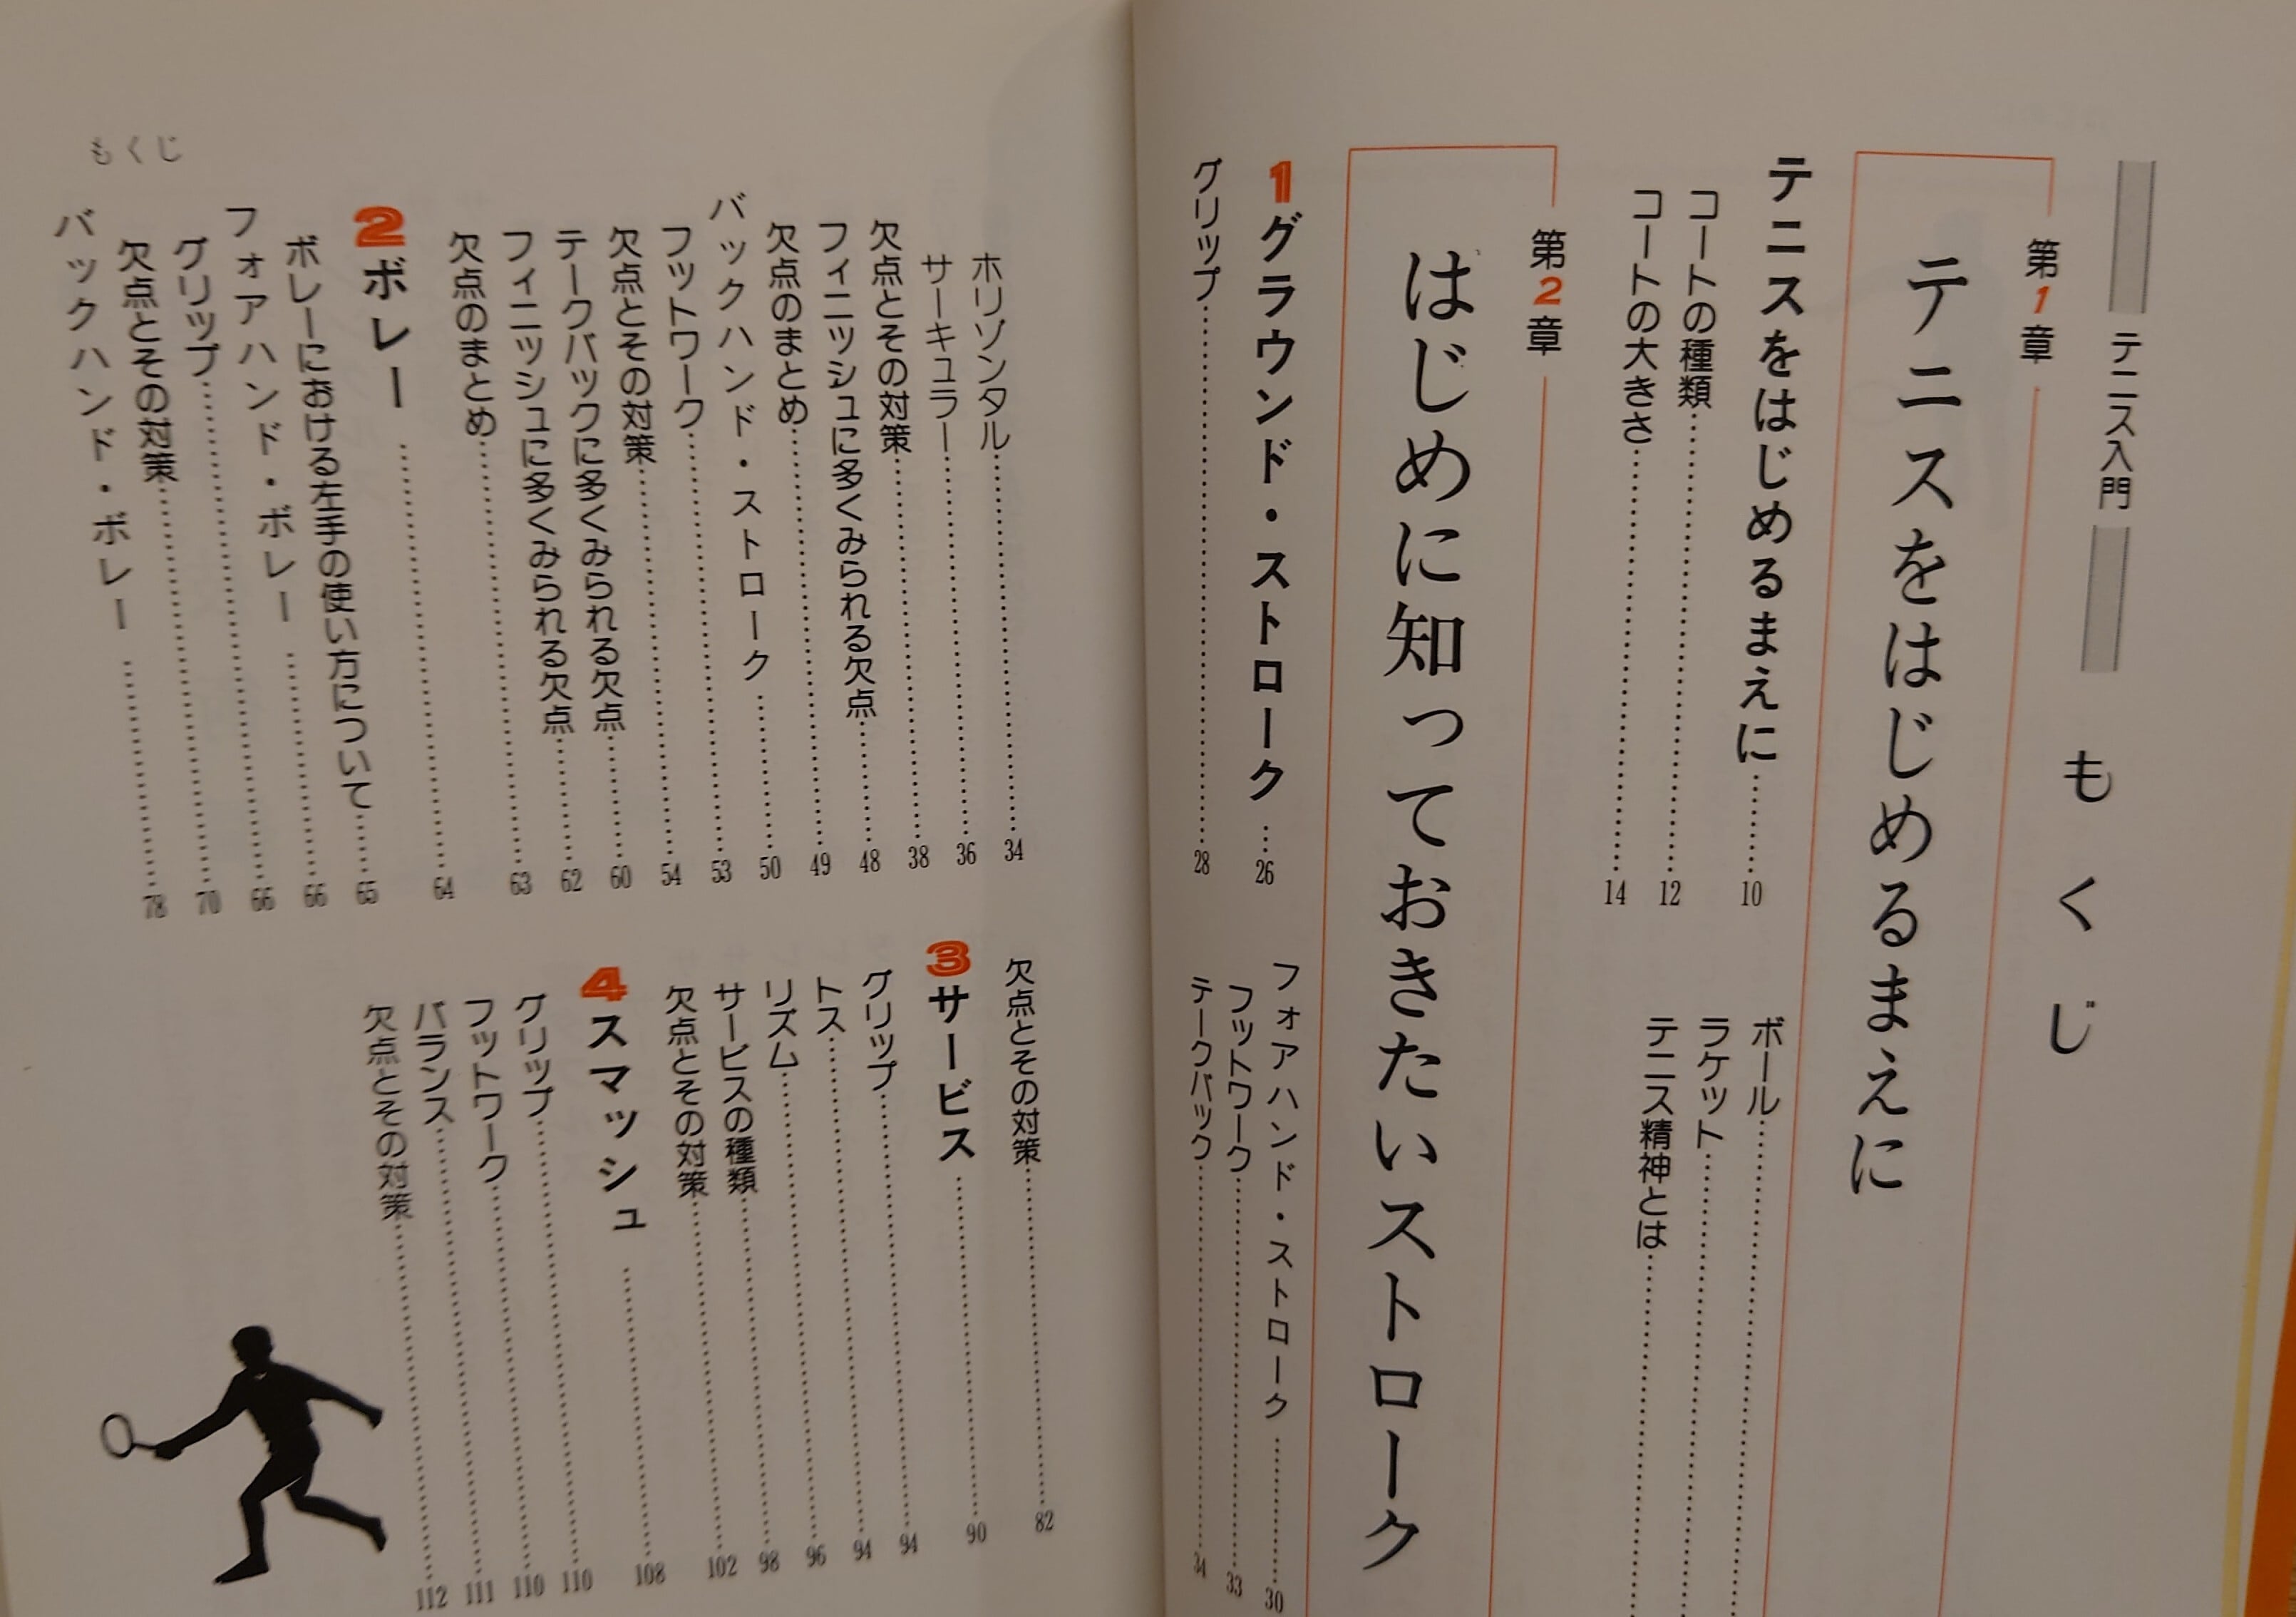 テニス入門 もくじ
第1章
テニスをはじめるまえに
テニスをはじめるまえに……10
コートの種類……12
コートの大きさ……14
ボール……
ラケット……
テニス精神とは……
第2章
はじめに知っておきたいストローク
1 グラウンド・ストローク…26
グリップ……28
フォアハンド・ストローク……30
フットワーク……33
テークバック……34
ホリゾンタル……34
サーキュラー……36
欠点とその対策……38
フィニッシュに多くみられる欠点……48
欠点のまとめ……49
バックハンド・ストローク……50
フットワーク……53
欠点とその対策……54
テークバックに多くみられる欠点……60
フィニッシュに多くみられる欠点……62
欠点のまとめ……63
2 ボレー……64
ボレーにおける左手の使い方について……65
フォアハンド・ボレー……66
グリップ……66
欠点とその対策……70
バックハンド・ボレー……78
欠点とその対策……82
3 サービス……90
グリップ……94
トス……94
リズム……96
サービスの種類……98
欠点とその対策……102
4 スマッシュ……108
グリップ……110
フットワーク……110
バランス……111
欠点とその対策……112
もくじ